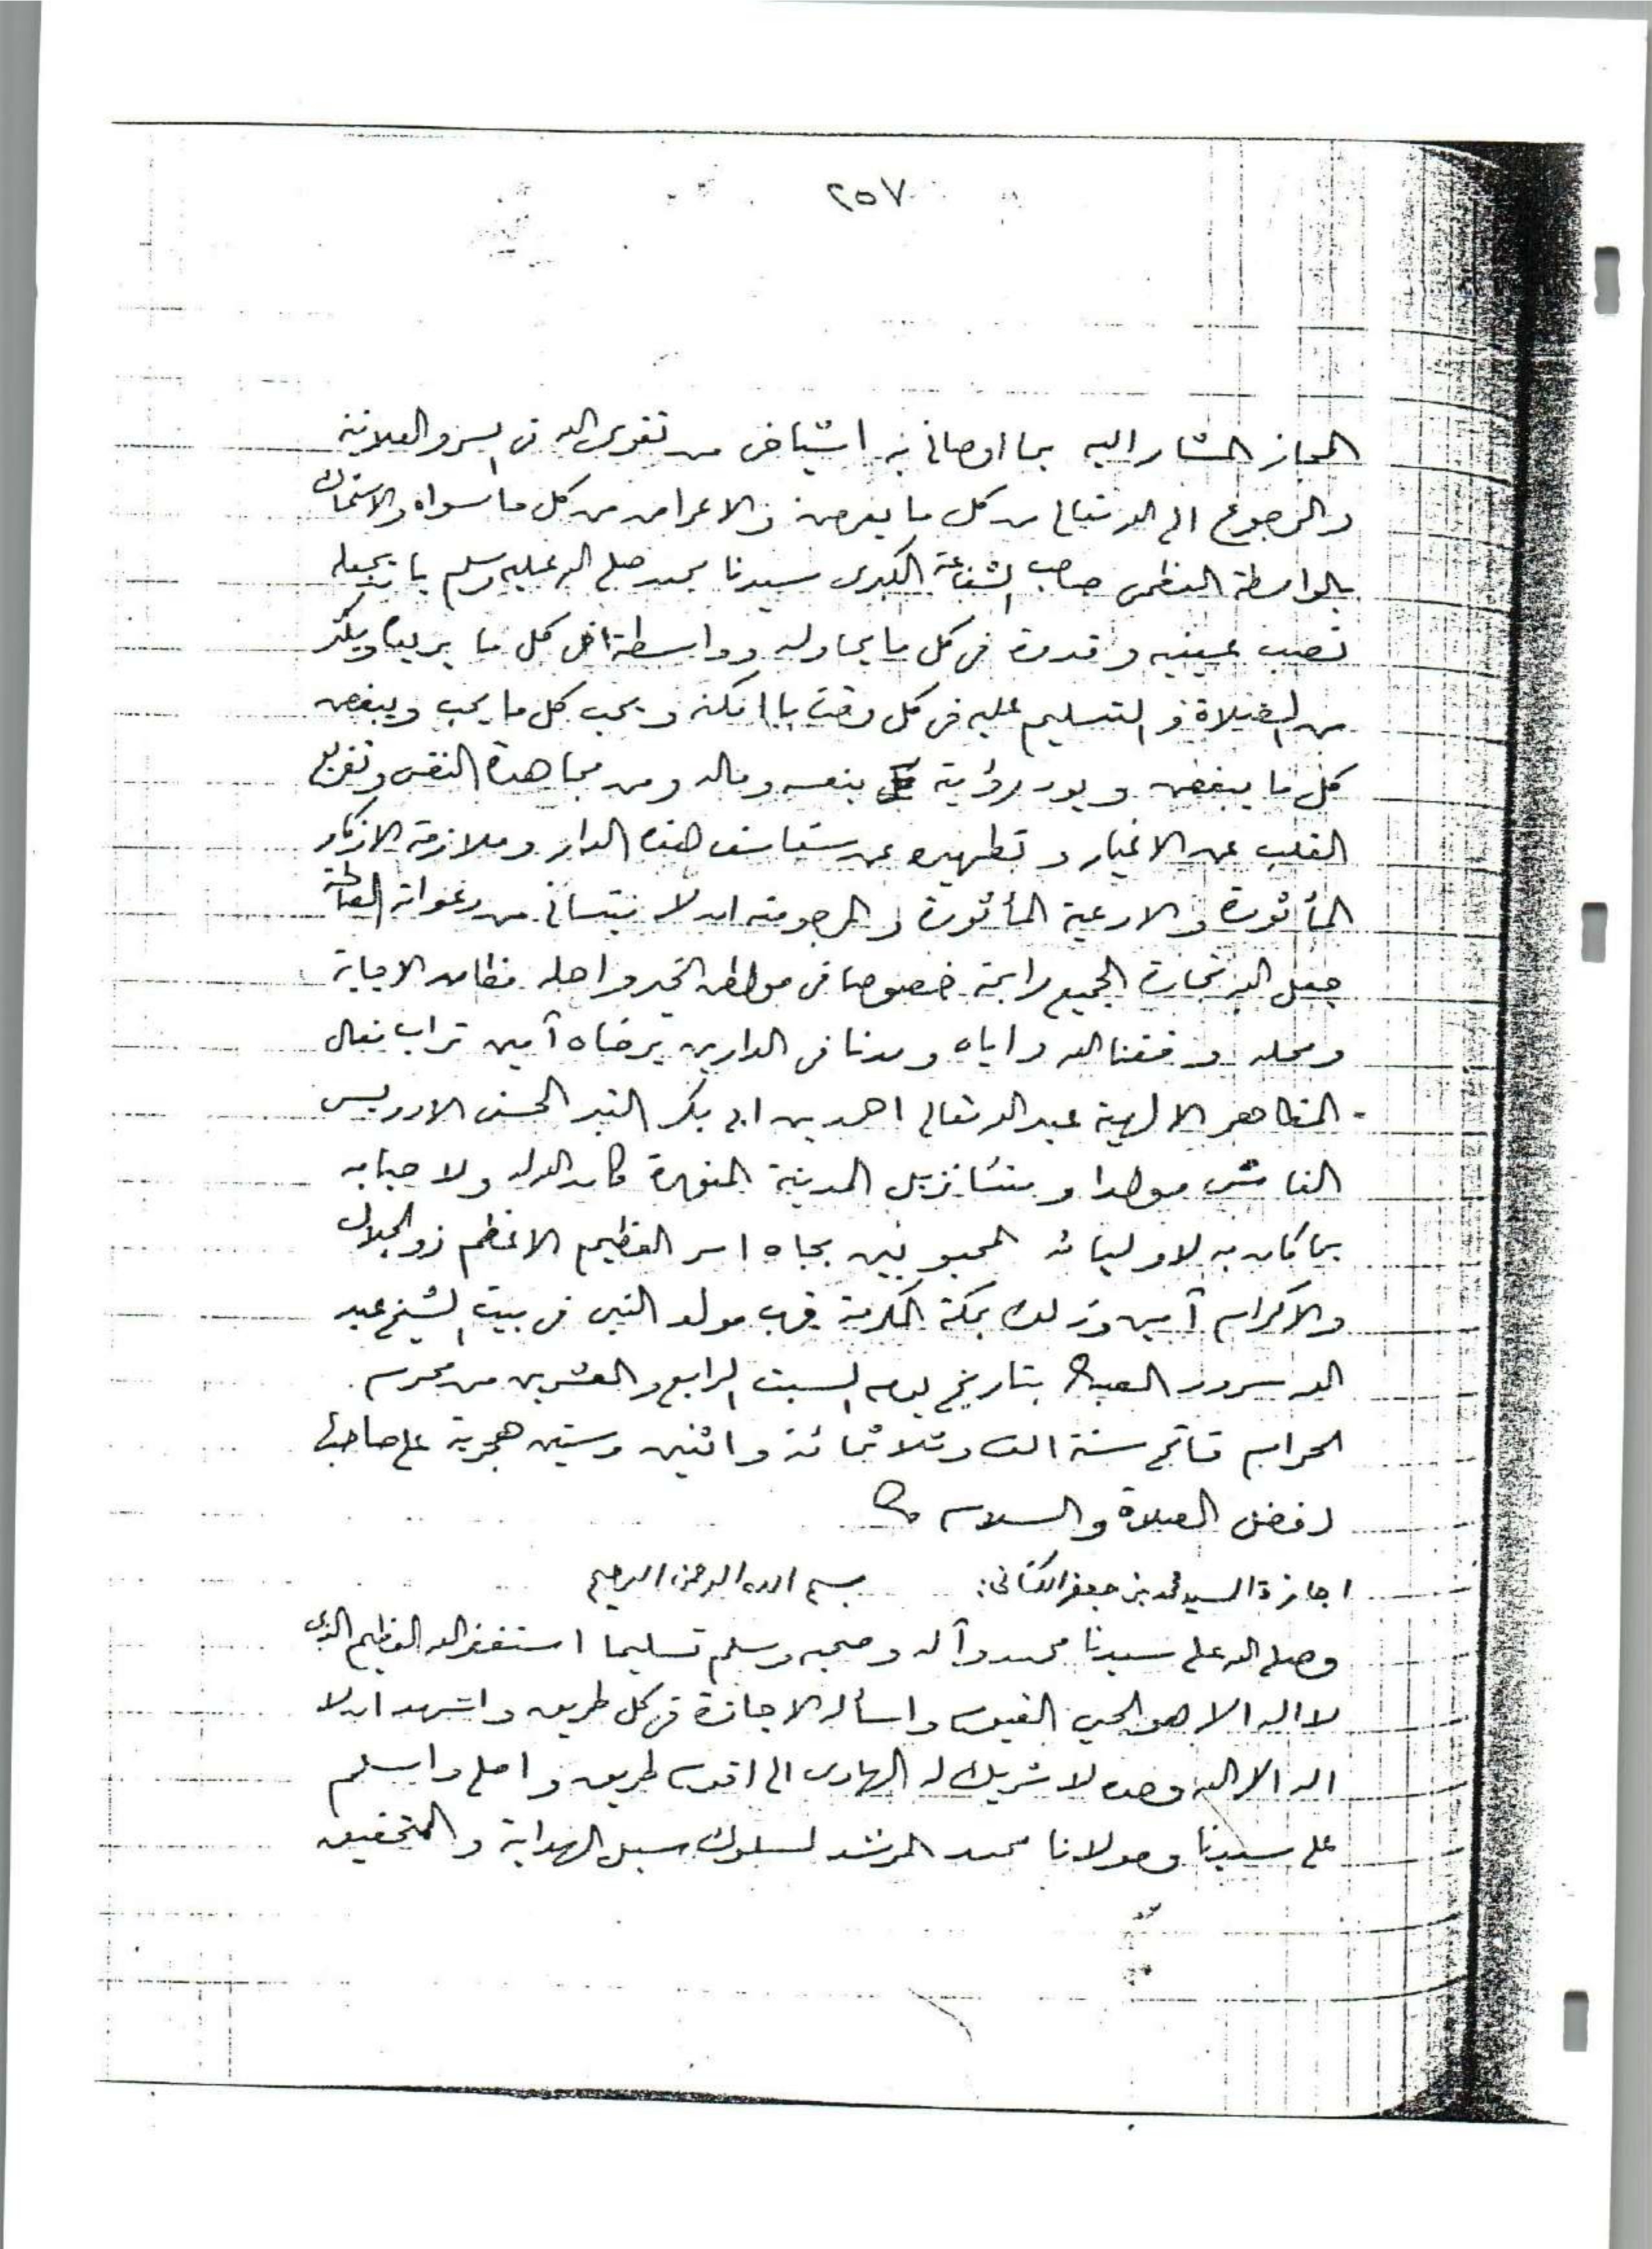 ٢٥٧
المجاز المشار اليه بما اوصانى به اشياخى من تقوى الله فى السر والعلانية
والرجوع الى الله تعالى من كل ما يعرض والاعراض من كل ما سواه والاستمساك
بالواسطة العظمى صاحب الشفاعة الكبرى سيدنا محمد صلى الله عليه وسلم بان يجعله
نصب عينيه وقدوة فى كل ما يحاوله وواسطة فى كل ما يريد ويكثر
من الصلاة والتسليم عليه فى كل وقت ما امكنه ويحب كل ما يحب ويبغض
كل ما يبغض ويود رؤية بنفسه وماله ومن مجاهدة النفس وتفريغ
القلب عن الاغيار وتطهيره عن هذه الدار وملازمة الاذكار
المأثورة والادعية المأثورة والمرجو منه ان لا ينسانى من دعواته الصالحة
جعل الله تجارة الجميع رابحة خصوصا فى مواطن الخير واهله مظان الاجابة
ومحله وفقنا الله واياه ومدنا فى الدارين برضاه آمين تراب نعال
المظاهر الالهية عبد الله تعالى احمد بن ابى بكر الحسنى الادريسى
الفاسى مولدا ومنشا نزيل المدينة المنورة كان الله له ولاحبابه
بما كان به لاوليائه المحبوبين بجاه اسم العظيم الاعظم ذو الجلال
والاكرام آمين وذلك بمكة المكرمة قرب مولد النبى فى بيت الشيخ عبد
الله سرور بتاريخ يوم السبت الرابع والعشرين من محرم
الحرام فاتح سنة الف وثلاثمائة واثنين وستين هجرية على صاحبها
افضل الصلاة والسلام
اجازة السيد محمد بن جعفر الكتانى: بسم الله الرحمن الرحيم
وصلى الله على سيدنا محمد وآله وصحبه وسلم تسليما استغفر الله العظيم الذى
لا اله الا هو الحى القيوم واسأله الاجازة فى كل طريق واشهد ان لا
اله الا الله وحده لا شريك له الهادى الى اقوم طريق واصلى واسلم
على سيدنا ومولانا محمد المرشد لسلوك سبل الهداية والتحقيق